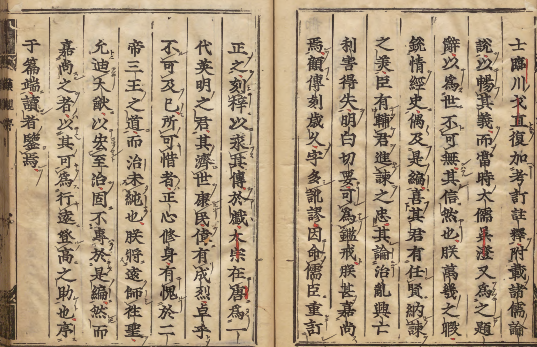 士臨川戈直復加考訂註釋附載諸儒論
說以暢其義而當時大儒吳澄又爲之題
辭以爲世不可無其信然也朕萬幾之暇
銳情經史偶及是編喜其君有任賢納諫
之美臣有輔君進諫之忠其論治亂興亡
利害得失明白切要可爲鑑戒朕甚嘉尚
焉顧傳刻歲久字多訛謬因命儒臣重訂
正之刻梓以永其傳於戲太宗在唐爲一
代英明之君其濟世康民偉有成烈卓乎
不可及已所可惜者正心修身有愧於二
帝三王之道而治未純也朕將遠師往聖
允迪大猷以宏至治固不專於是編然而
嘉尚之者以其可爲行遠登高之助也序
于篇端讀者鑒焉